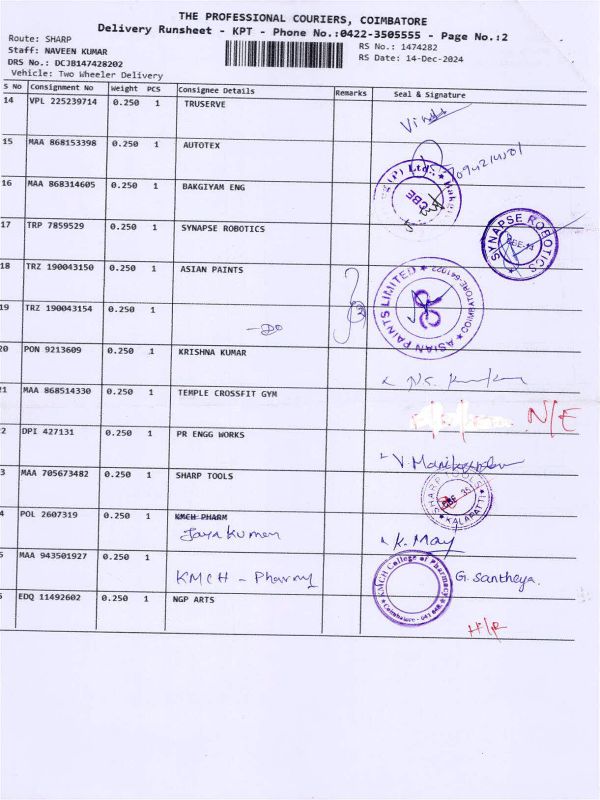 THE PROFESSIONAL COURIERS, COIMBATORE
Delivery Runsheet - KPT - Phone No.:0422-3505555 - Page No.:2
Route: SHARP
Staff: NAVEEN KUMAR
DRS No.: DCJB147428202
Vehicle: Two Wheeler Delivery
RS No.: 1474282
RS Date: 14-Dec-2024
S No Consignment No Weight PCS Consignee Details Remarks Seal & Signature
14 VPL 225239714 0.250 1 TRUSERVE
15 MAA 868153398 0.250 1 AUTOTEX
16 MAA 868314605 0.250 1 BAKGIYAM ENG
(P) Ltd.,
CBE
17 TRP 7859529 0.250 1 SYNAPSE ROBOTICS
SYNAPSE ROBOTICS
18 TRZ 190043150 0.250 1 ASIAN PAINTS
ASIAN PAINTS LIMITED COIMBATORE-641022
19 TRZ 190043154 0.250 1
-Do
20 PON 9213609 0.250 1 KRISHNA KUMAR
21 MAA 868514330 0.250 1 TEMPLE CROSSFIT GYM N/E
2 DPI 427131 0.250 1 PR ENGG WORKS
3 MAA 705673482 0.250 1 SHARP TOOLS
SHARP TOOLS CBE 35 KALAPATTI
4 POL 2607319 0.250 1 KMCH PHARM
Jaya Kumar K. May
MAA 943501927 0.250 1
KMCH - Pharmy
KMCH College of Pharmacy Coimbatore - 641 048. G. Santheya.
EDQ 11492602 0.250 1 NGP ARTS